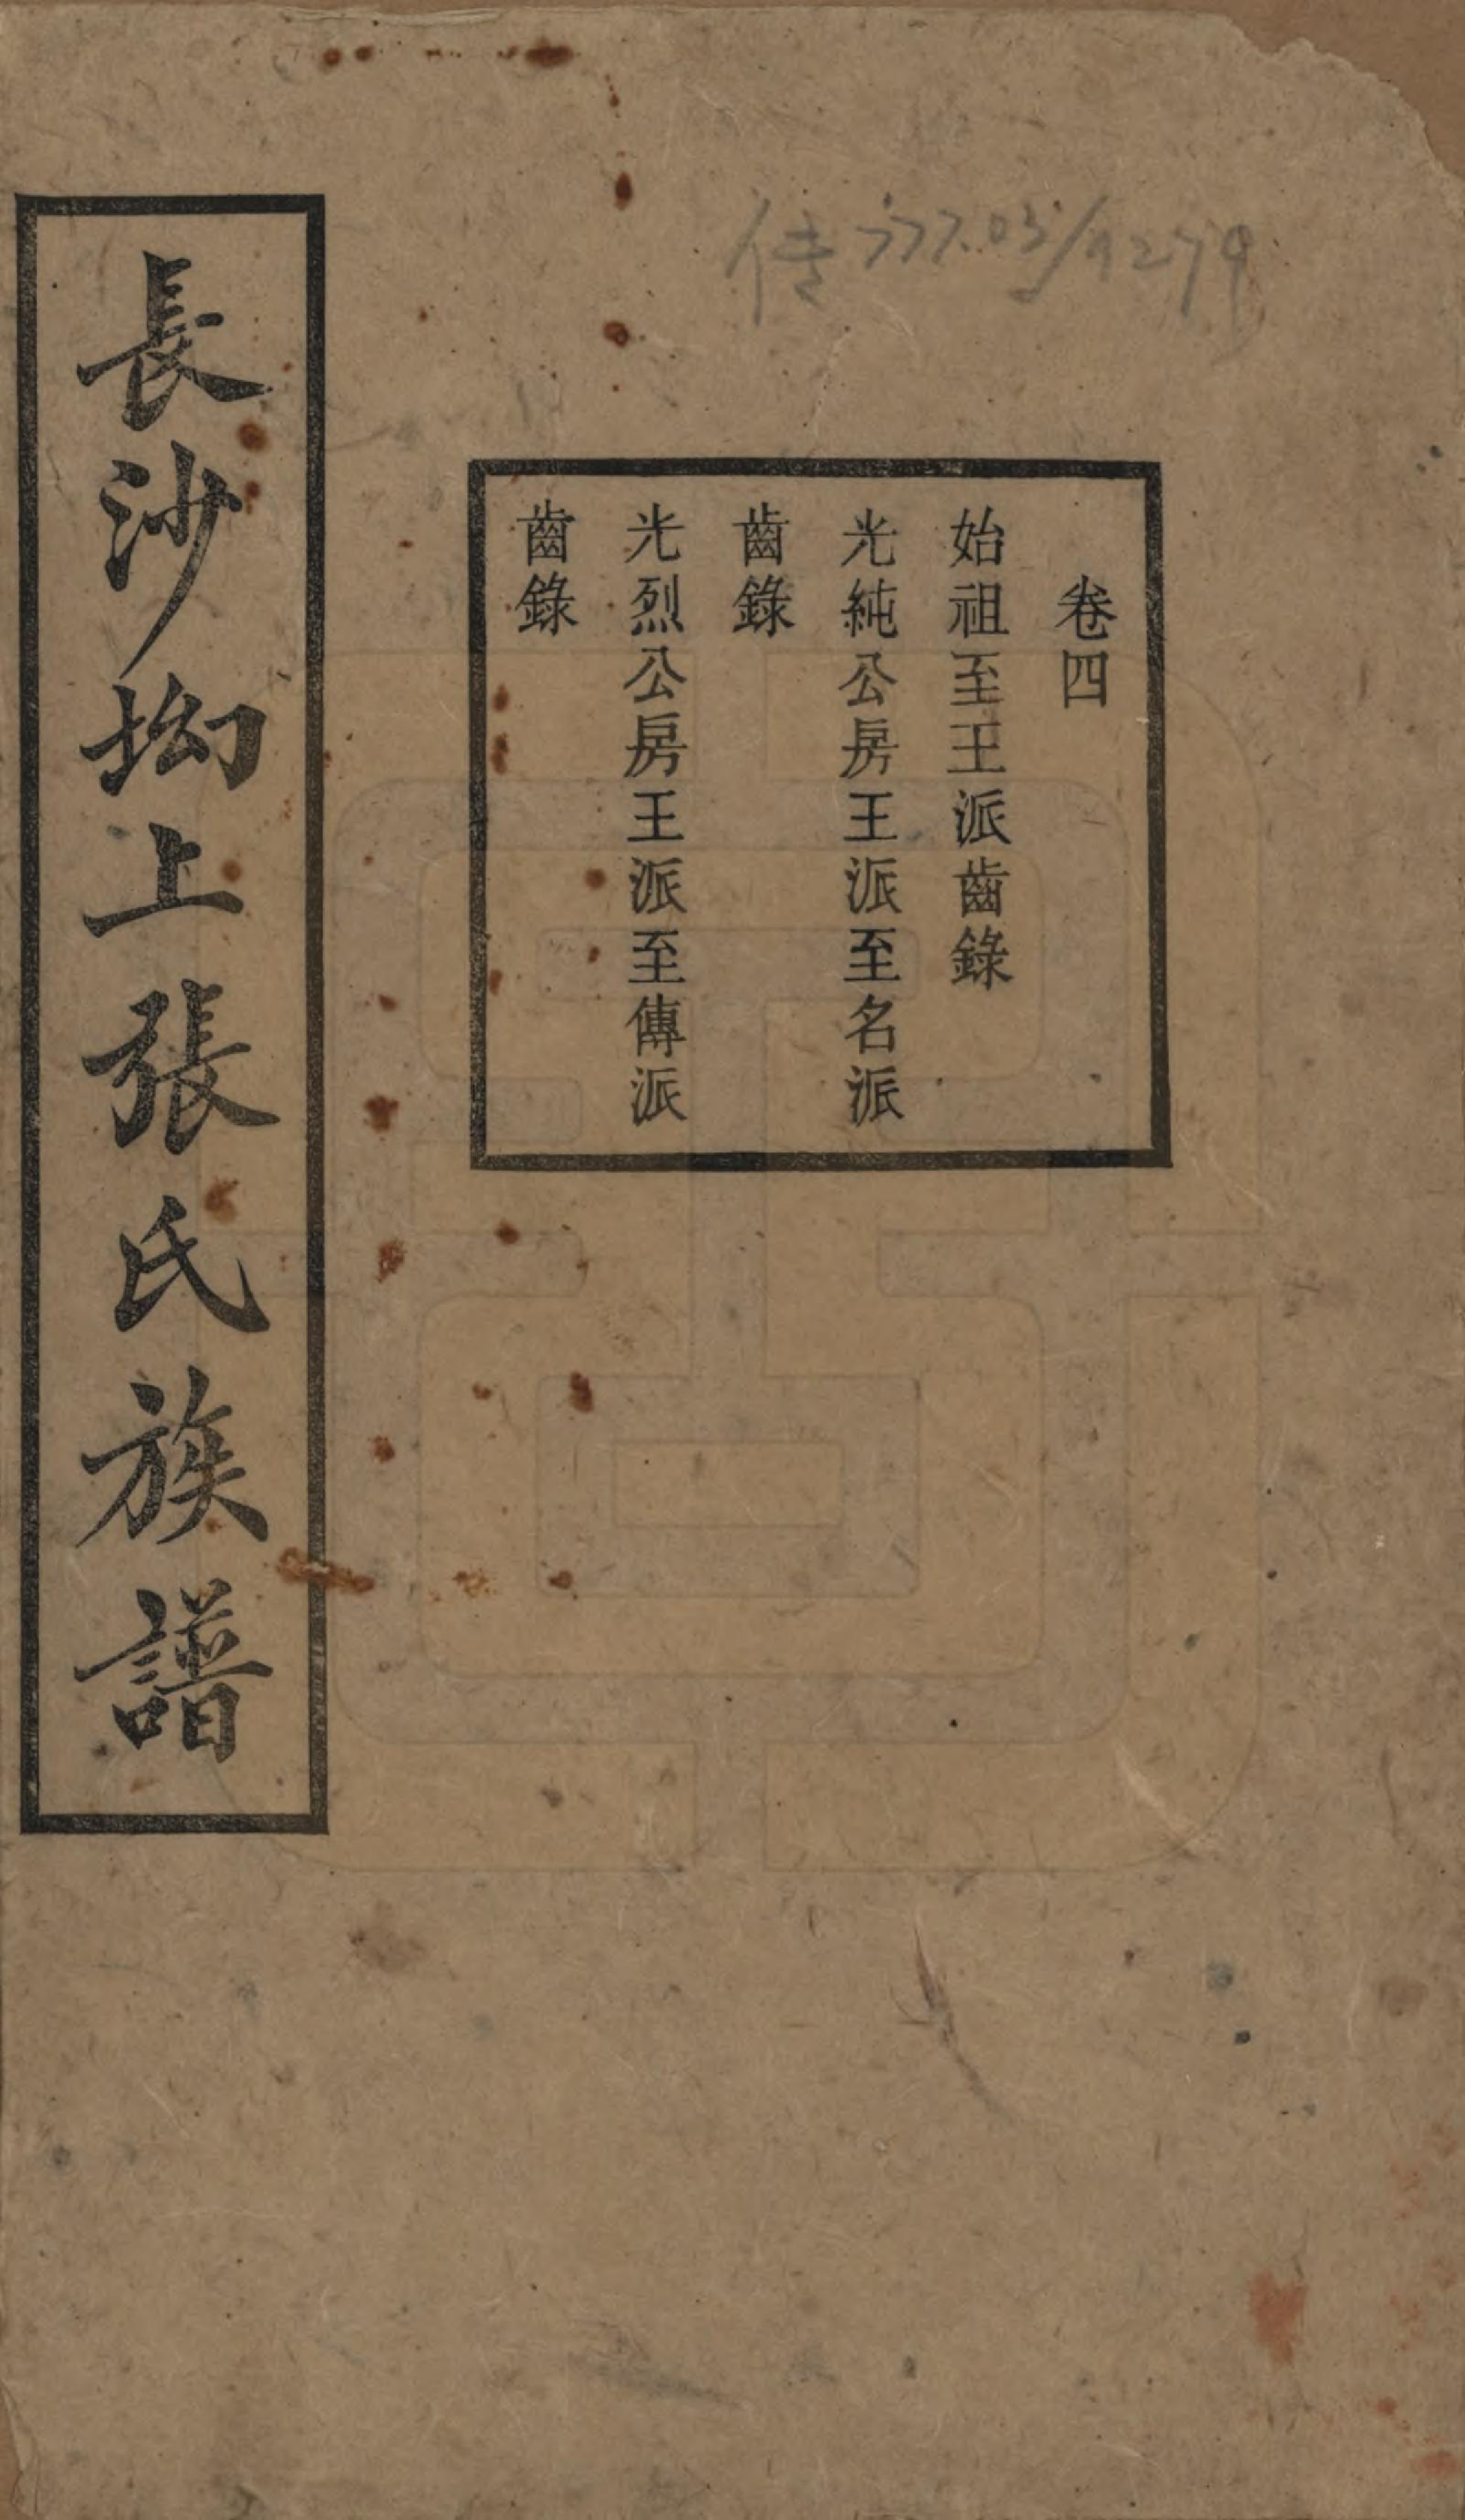 传777.03/9279
卷四
始祖至王派齒錄
光純公房王派至名派
齒錄
光烈公房王派至傳派
齒錄
長沙坳上張氏族譜